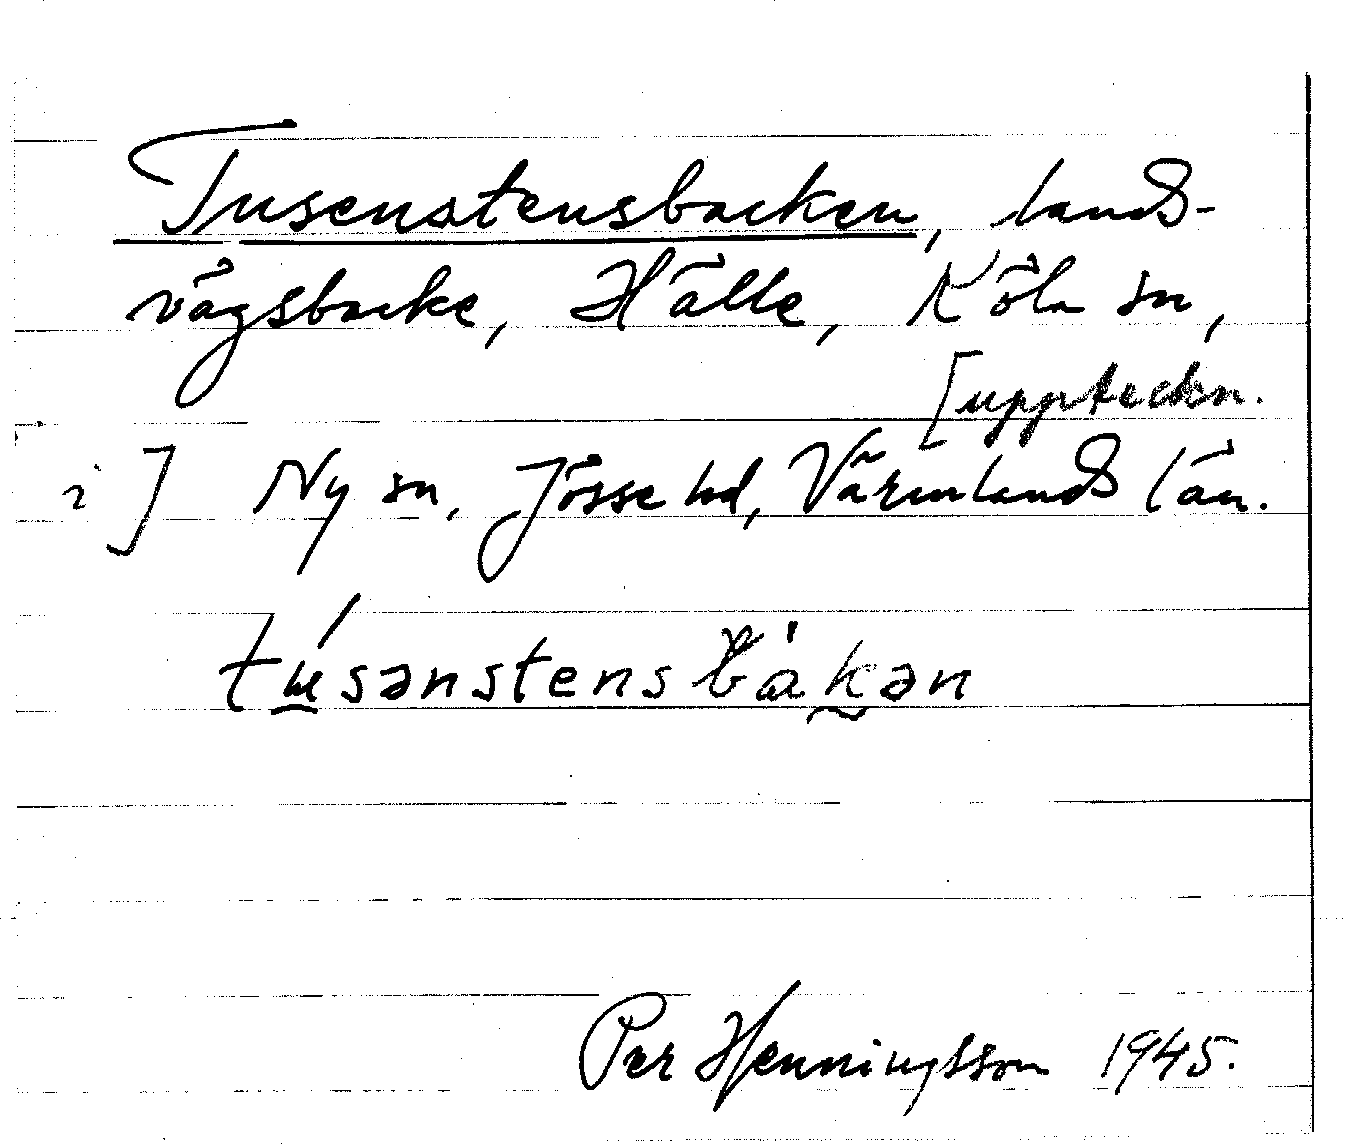 Tusenstensbacken, lands-
vägsbacke, Hälle, Köla sn,
[uppteckn.
i] Ny sn, Jösse hd, Värmlands län.
túsənstensbàkən
Per Henningsson 1945.